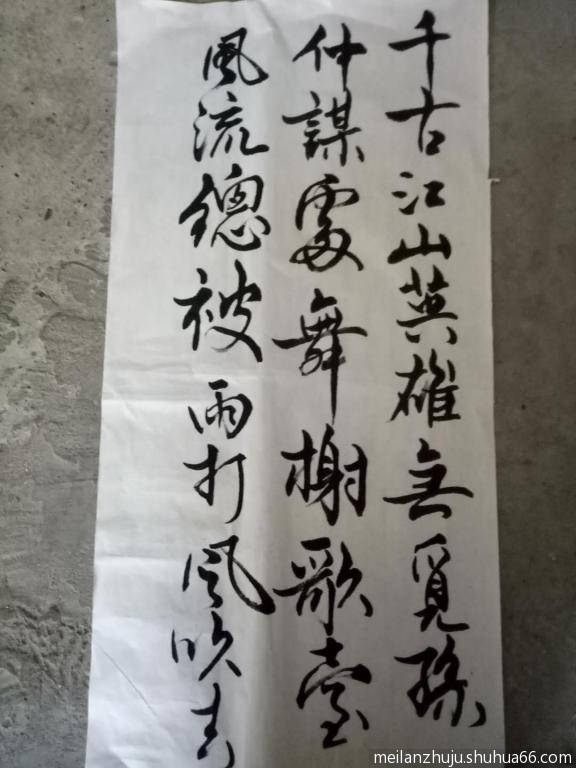 千古江山英雄無覓孫
仲謀處舞榭歌臺
風流總被雨打風吹去
meilanzhuju.shuhua66.com